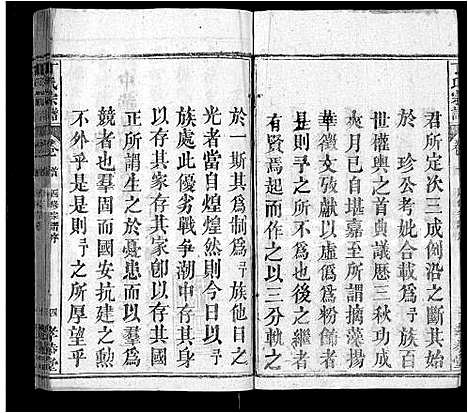 丁氏宗譜
君所定次三成例沿之斷其始
于珍公考妣合載 五
世僅輿之首典議歷三秋功成
火月已自堪嘉至所謂摛藻揚
華徵文獻以虛爲粉飾者
是則予之所不爲也後之繼者
有賢焉起而作之以衍分軌之
於一斯其爲制爲予族他日之
光者當自煌煌然則今日之
族處此優劣戰爭潮中存其身
以存其家存其家卽以存其國
正所謂生之於憂患而以羣爲
競者也羣固而國安抗建之勳
不外乎是是予之所厚望乎
丁氏宗譜
卷首
四修宗譜序
四
孝養堂